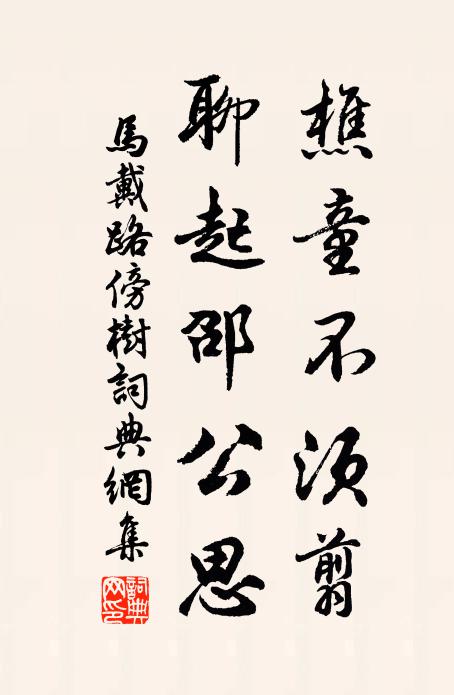 樵童不須翦
聊起邵公思
馬戴路傍樹詞典網集
詞典网印